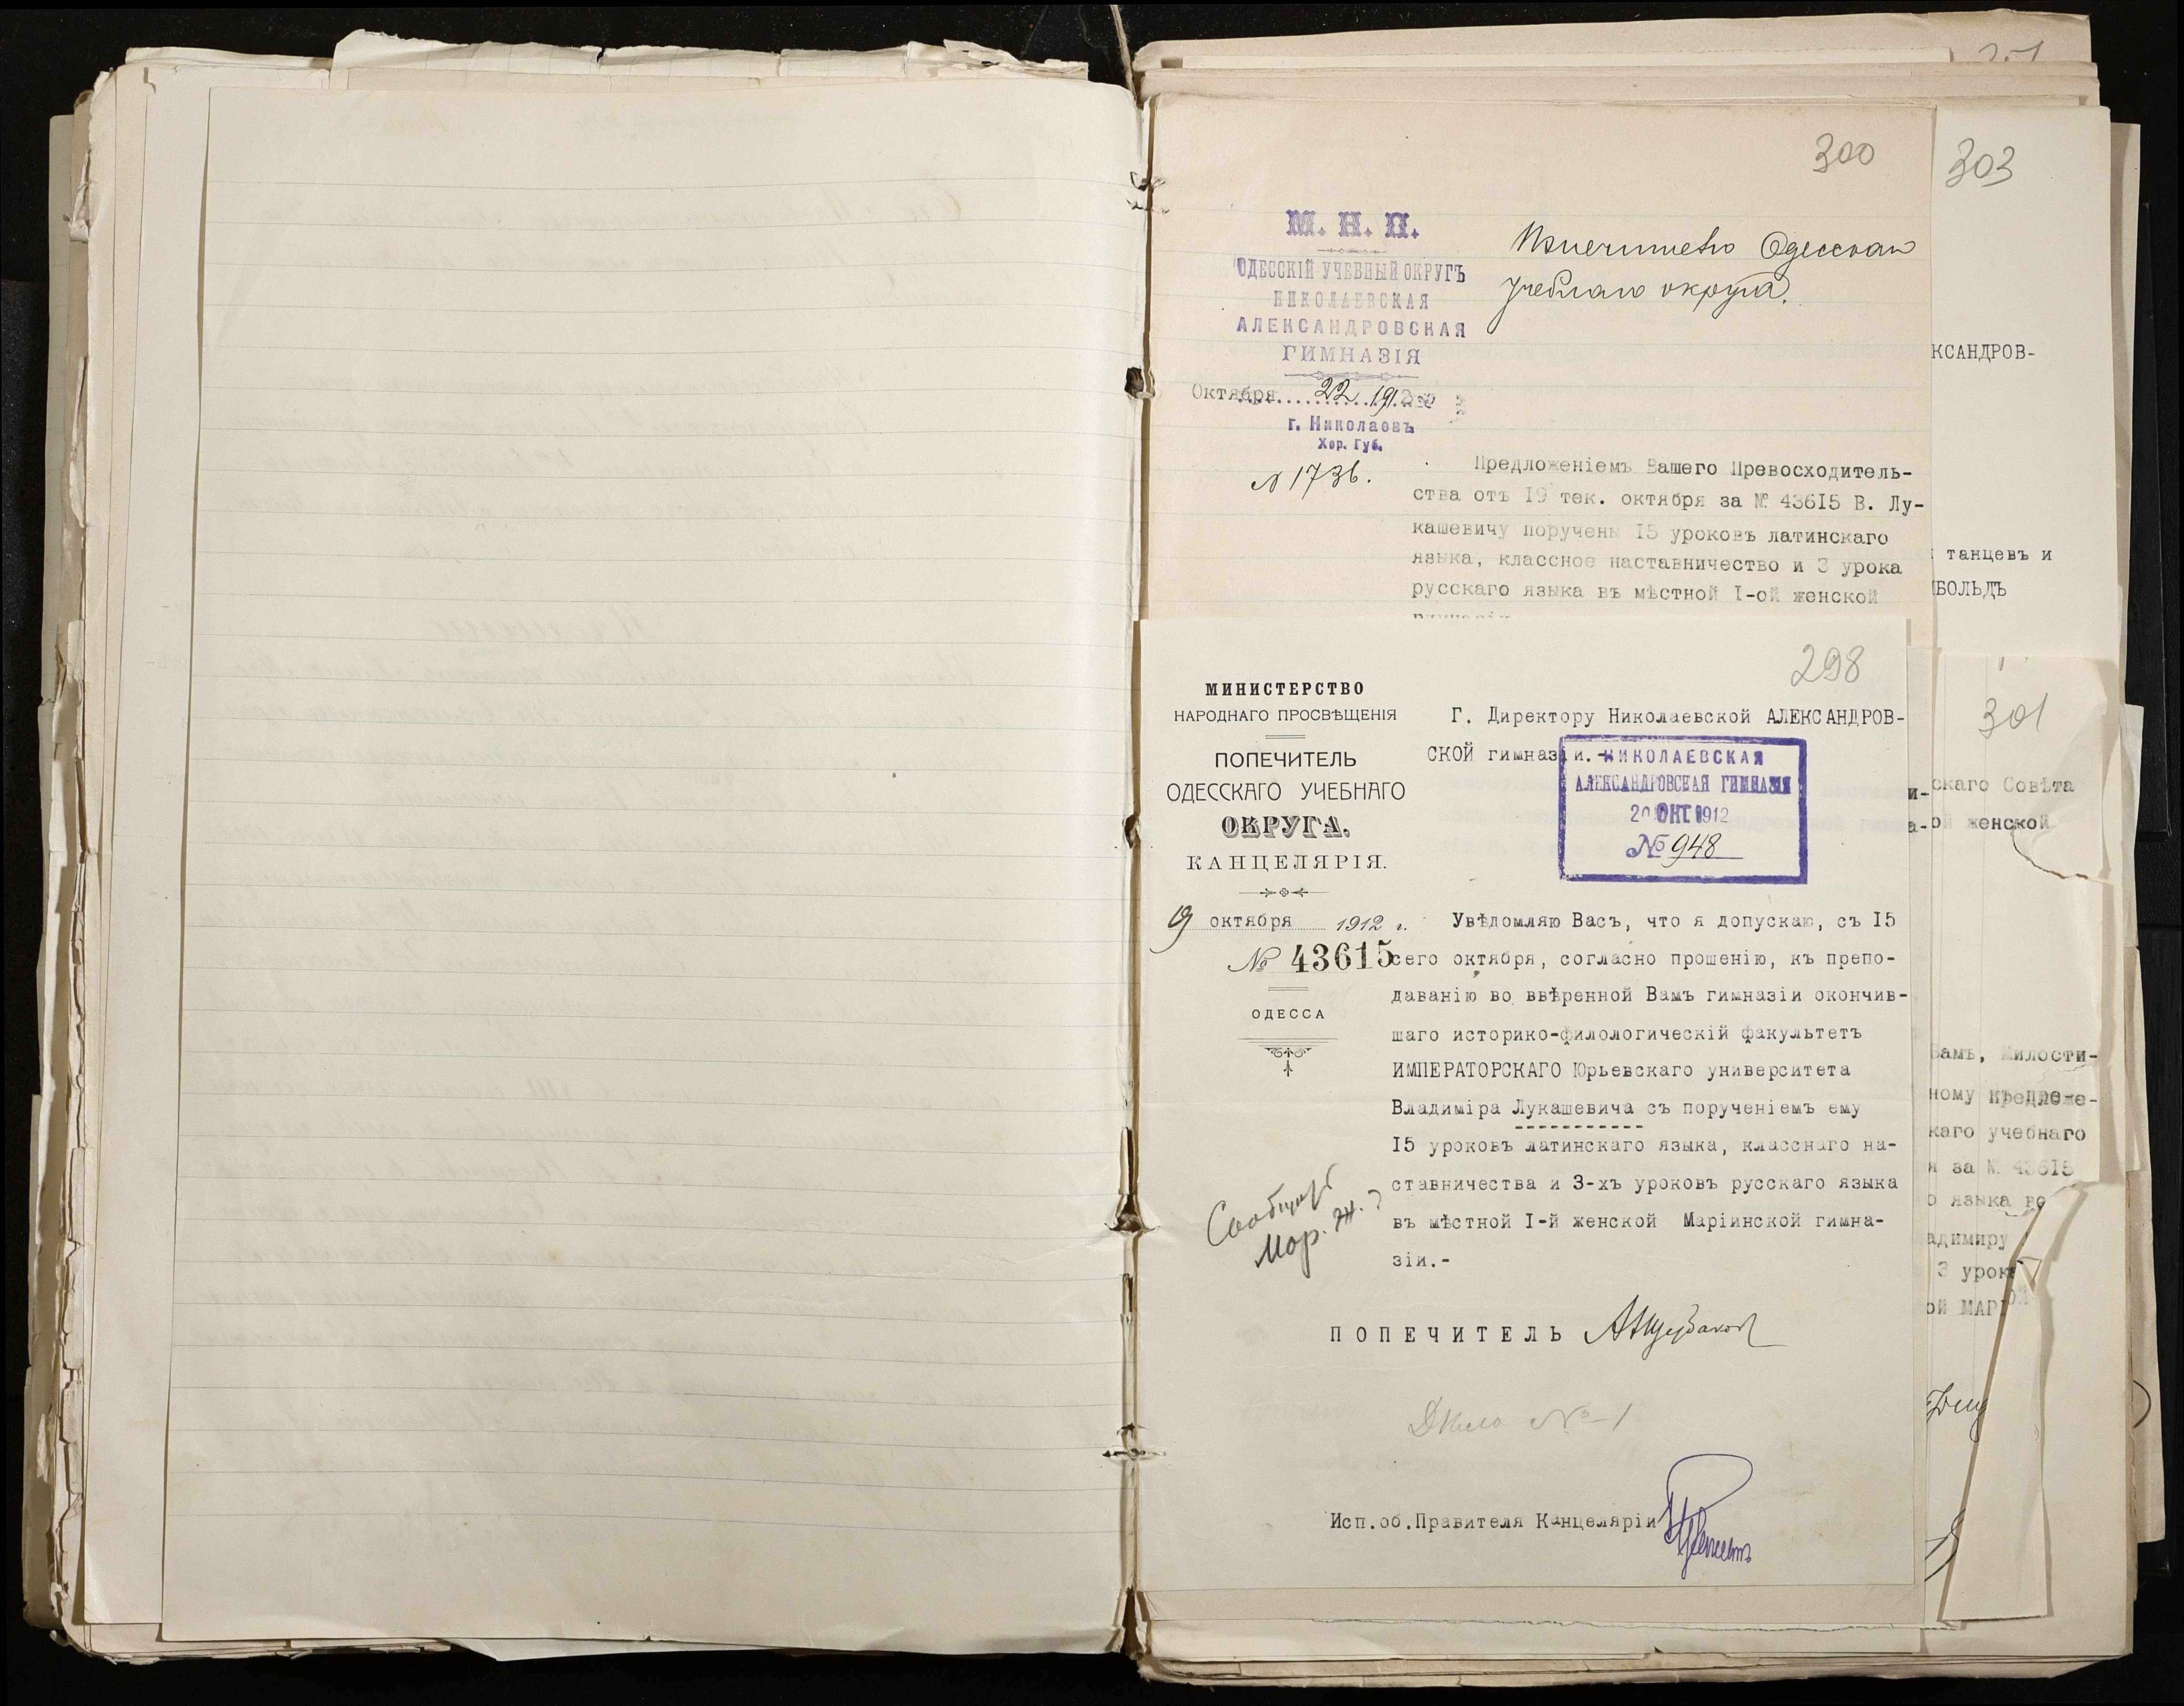 251
300
303
М. Н. П.
ОДЕССКІЙ УЧЕБНЫЙ ОКРУГЪ
НИКОЛАЕВСКАЯ
АЛЕКСАНДРОВСКАЯ
ГИМНАЗІЯ
Октября 22 1912
г. Николаевъ
Хер. Губ.
№ 1736.
Одесскаго
учебнаго округа.
Предложеніемъ Вашего Превосходитель-
ства отъ 19 тек. октября за № 43615 В. Лу-
кашевичу поручены 15 уроковъ латинскаго
языка, классное наставничество и 3 урока
русскаго языка въ мѣстной I-ой женской
КСАНДРОВ-
танцевъ и
БОЛЬДЪ
298
МИНИСТЕРСТВО
НАРОДНАГО ПРОСВѢЩЕНІЯ
ПОПЕЧИТЕЛЬ
ОДЕССКАГО УЧЕБНАГО
ОКРУГА.
КАНЦЕЛЯРІЯ.
19 октября 1912 г.
№ 43615
ОДЕССА
Г. Директору Николаевской АЛЕКСАНДРОВ-
СКОЙ гимназіи.-
НИКОЛАЕВСКАЯ
АЛЕКСАНДРОВСКАЯ ГИМНАЗІЯ
20 ОКТ. 1912
№ 948
Увѣдомляю Васъ, что я допускаю, съ 15
сего октября, согласно прошенію, къ препо-
даванію во ввѣренной Вамъ гимназіи окончив-
шаго историко-филологическій факультетъ
ИМПЕРАТОРСКАГО Юрьевскаго университета
Владиміра Лукашевича съ порученіемъ ему
15 уроковъ латинскаго языка, класснаго на-
ставничества и 3-хъ уроковъ русскаго языка
въ мѣстной I-й женской Маріинской гимна-
зіи.-
Мар. ж.
ПОПЕЧИТЕЛЬ
Дѣло № 1
Исп.об.Правителя Канцеляріи
301
скаго Совѣта
ой женской
и-
а-
Вамъ, Милости-
ному предложе-
каго учебнаго
я за № 43615
о языка во
адимиру
3 урока
ой МАР